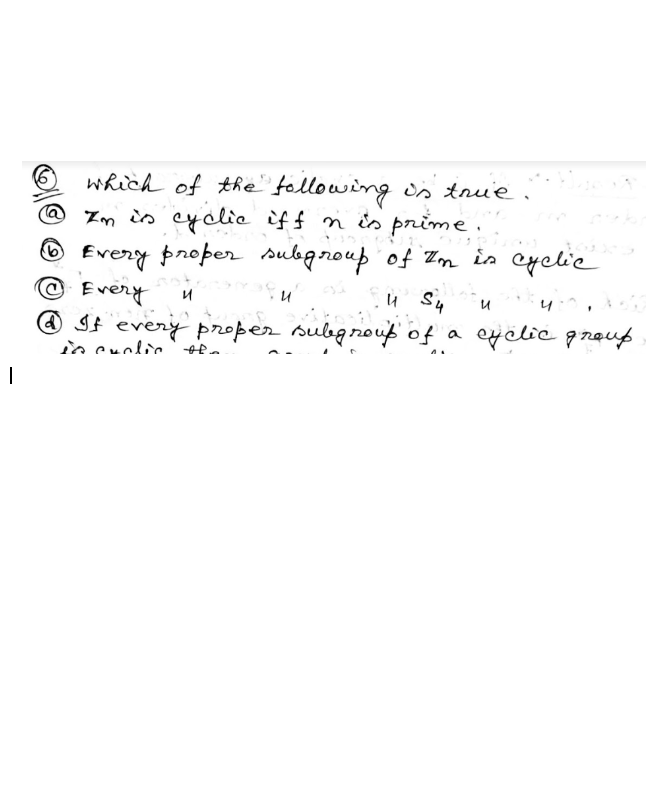 ⑥ Which of the following is true.
ⓐ Zn is cyclic iff n is prime.
ⓑ Every proper subgroup of Zn is cyclic
ⓒ Every 〃 〃 〃 S4 〃 〃 .
ⓓ If every proper subgroup of a cyclic group
is cyclic